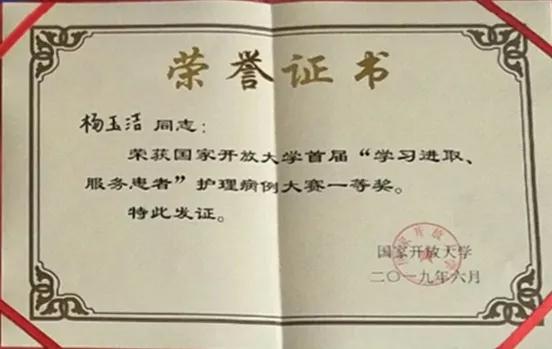 荣誉证书
杨玉洁 同志：
荣获国家开放大学首届“学习进取、
服务患者”护理病例大赛一等奖。
特此发证。
国家开放大学
二〇一九年六月